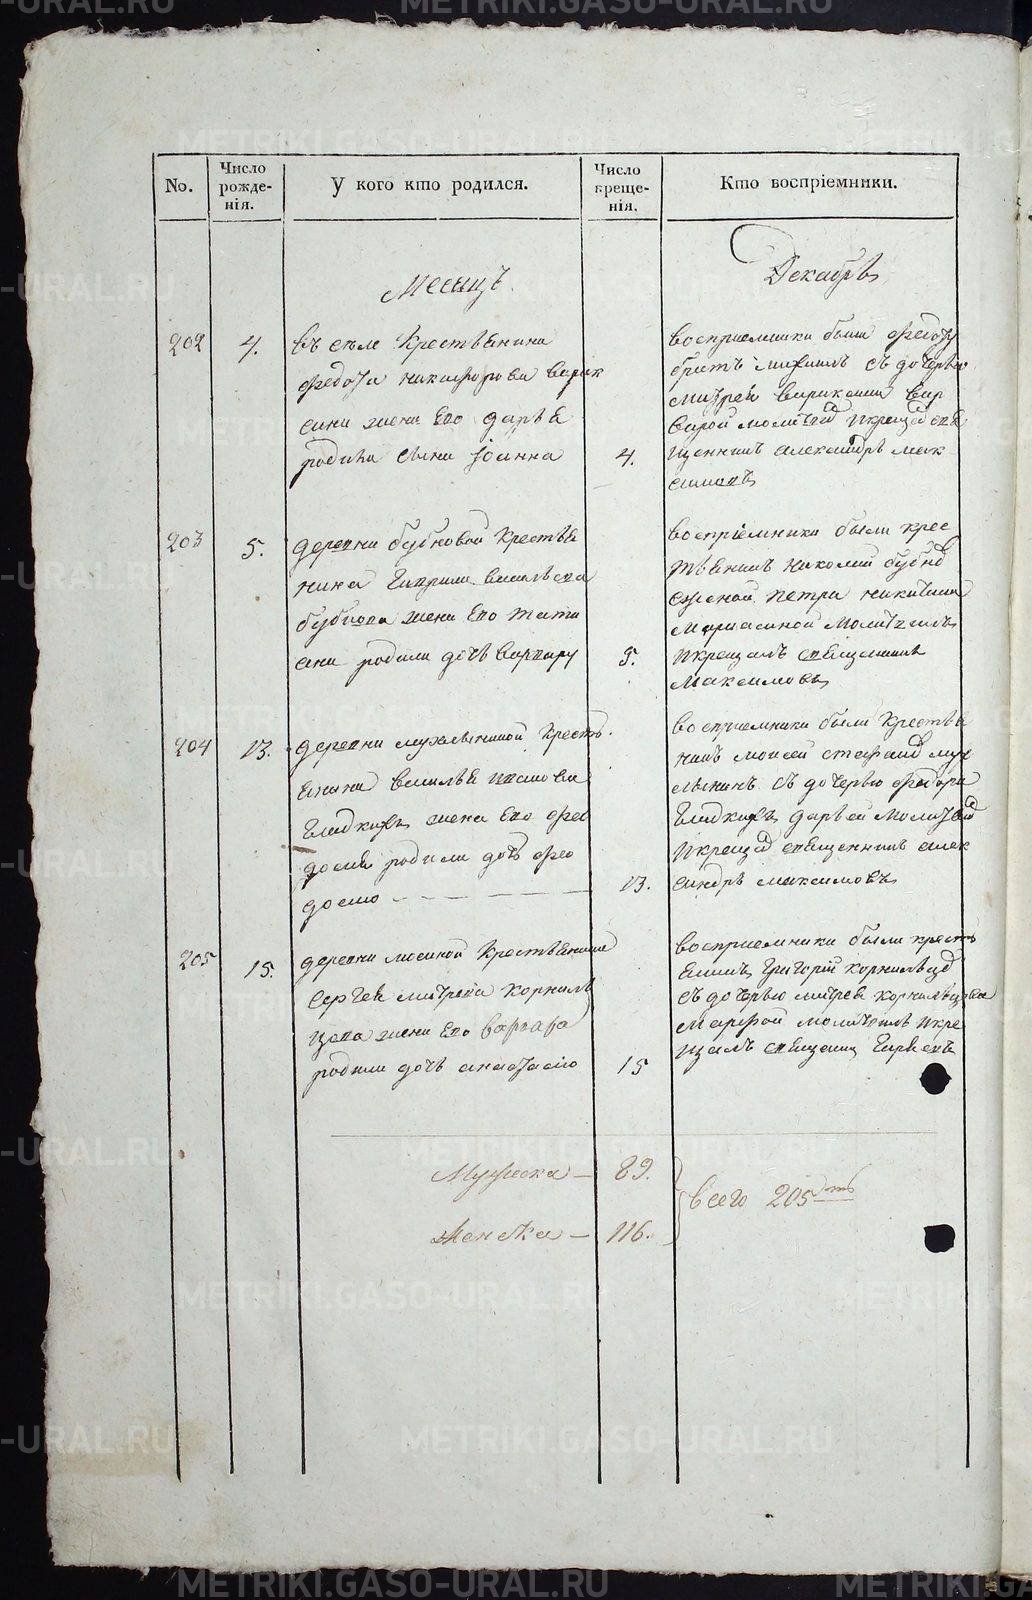 No.
Число рожде-нія.
У кого кто родился.
Число креще-нія.
Кто воспріемники.
Месяцъ
Декабрь
202
4.
въ селе Крестьянина
федота никифорова варак
сина жена Его дарья
родила сына Іоанна
4.
восприемники были федоту
братъ михаилъ съ дочерью
митрей вараксина вар
варой молитвов икрещав свя
щенникъ александръ мак
симовъ
203
5.
деревни бубновой Крестья
нина Гаврила васильева
бубнова жена Его тати
яна родила дочь варвару
5.
воспріемники были крес
тьянинъ николай бубнов
сженой петра никитина
молитвилъ
икрещалъ священникъ
Максимовъ
204
13.
деревни мухлыниной Кресть
янина василья
Гладкихъ жена Его фео
досия родила дочь фео
досию
13.
восприемники были Крестья
нинъ моисей стефанов мух
лынинъ съ дочерью федора
Гладкихъ дарьей молитвов
икрещав священникъ алек
сандръ максимовъ
205
15.
деревни мосиной Крестьянина
сергея митрева корниль
цова жена Его варвара
родила дочь анастасію
15
восприемники были кресть
янинъ григорій корнильцов
съ дочерью митрея корнильцова
Марфой молитвилъ икре
щалъ священник
Мужеска — 89.
Женска — 116.
Всего 205
METRIKI.GASO-URAL.RU